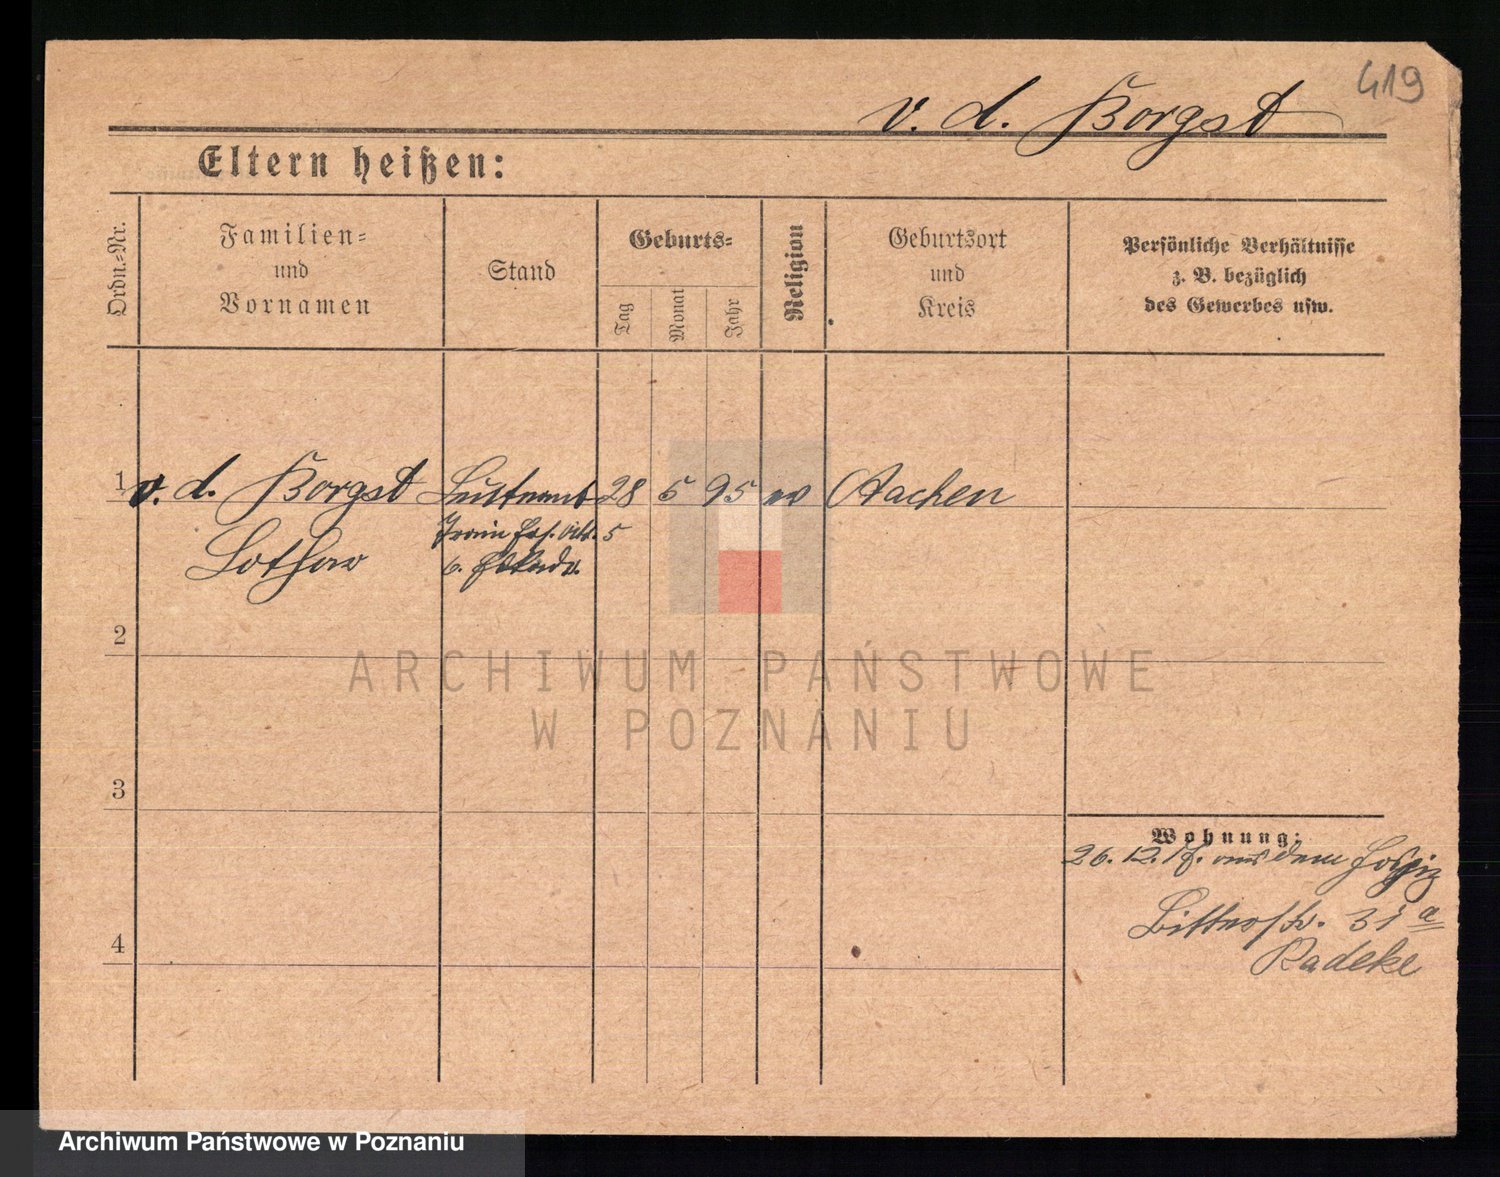 419
v. d. Borgst
Eltern heißen:
Ordn.-Nr.
Familien-
und
Vornamen
Stand
Geburts-
Tag
Monat
Jahr
Religion
Geburtsort
und
Kreis
Persönliche Verhältnisse
z. B. bezüglich
des Gewerbes usw.
1 v. d. Borgst Leutnant 28 5 95 ev Aachen
Train Ers. Abt. 5
Lothar 6.
2
ARCHIWUM PAŃSTWOWE
W POZNANIU
3
Wohnung:
26. 12. 17. aus dem Hospiz
Ritterstr. 31 a
Radeke
4
Archiwum Państwowe w Poznaniu